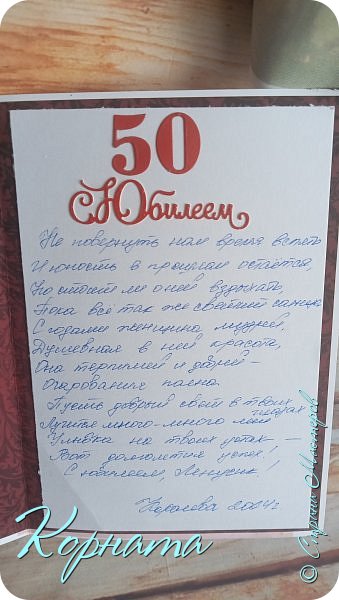 50
С Юбилеем
Не повернуть нам время вспять
И юность в прошлом остаётся,
Но стоит ли о ней вздыхать,
Пока всё так же светит солнце
С годами женщина мудрей,
Душевная в ней красота,
Она терпимей и добрей -
Очарования полна.
Пусть добрый свет в твоих
глазах
Лучится много-много лет
Улыбка на твоих устах -
Вот долголетия успех!
С юбилеем, Ленусик!
2024 г
Корната
© Страна Мастеров